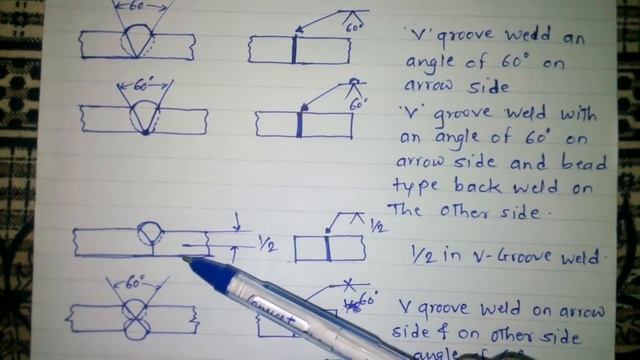 60°
60°
'V' groove wedd an
angle of 60° on
arrow side
60°
60°
'V' groove weld with
an angle of 60° on
arrow side and bead
type back weld on
The other side.
1/2
1/2
1/2 in V-Groove weld.
60°
60°
V groove weld on arrow
side & on other side
angle of 60°